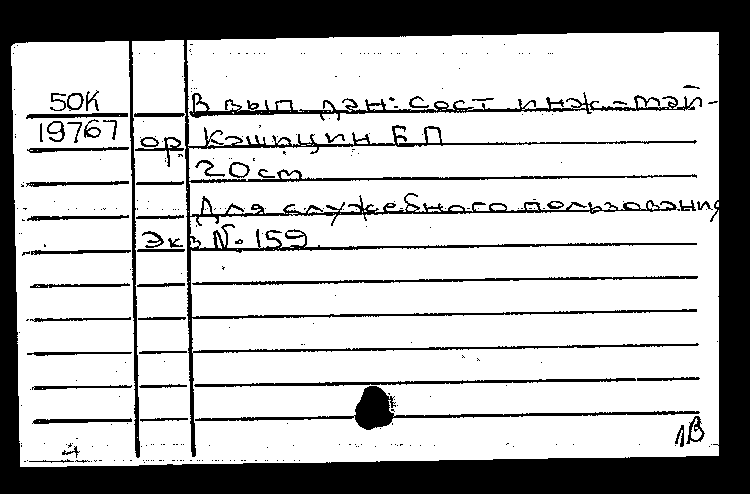 50К В вып. дан: сост. инж-май-
19767 ор Кашицин Е П
20 cm
Для служебного пользования
Экз № 159
4
1В